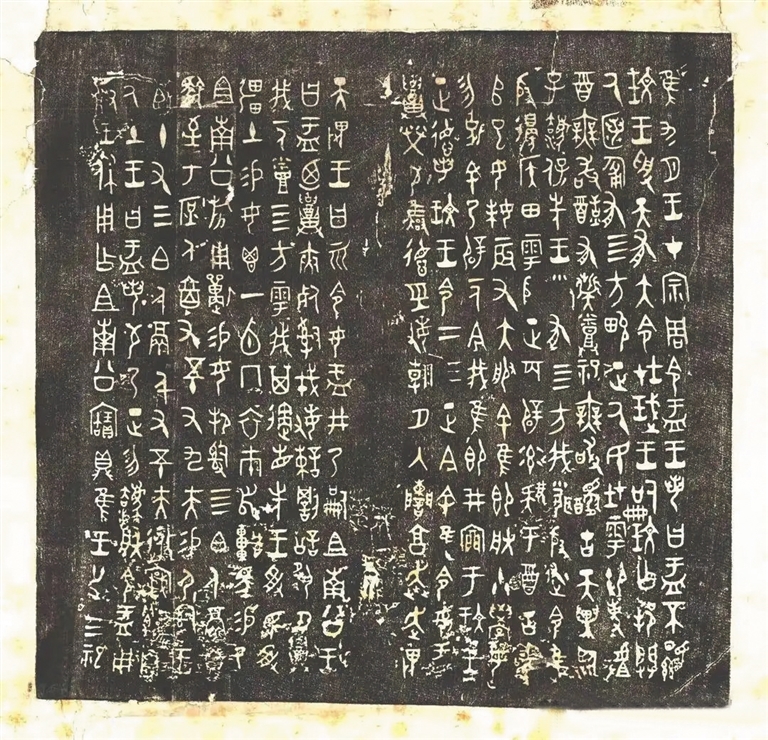 隹九月王才宗周令盂王若曰盂不顯
玟王受天有大令在珷王嗣玟乍邦闢
氒匿匍有四方畯正氒民在雩御事
酉無敢酖有烝祀無敢古天異臨
子灋保先王有四方我聞殷述令隹
殷邊侯田雩殷正百辟率肄于酉古喪
𠂤已女妹辰有大服余隹即朕小學女
勿余乃辟一人今我隹即井于玟王
正德若玟王令二三正今余隹令女盂
榮敬雍德經敏朝夕入諫享奔走畏
天畏王曰令女盂井乃嗣且南公王
曰盂迺夾死司戎敏諫罰訟夙夕
我一人烝四方雩我其遹省先王受民受
疆土易女鬯一卣冂衣巿舄車馬易乃
且南公旂用易女邦司四白人鬲自
馭至于庶人六百又五十又九夫易夷司王
臣十又三白人鬲千又五十夫遷自
氒土王曰盂若敬乃正勿灋朕令盂用
對王休用乍且南公寶鼎隹王廿又三祀